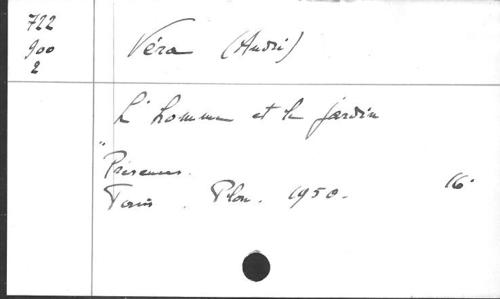 722
900
2
Véra (André)
L'homme et le jardin
"Présences.
Paris. Plon. 1950. 16°